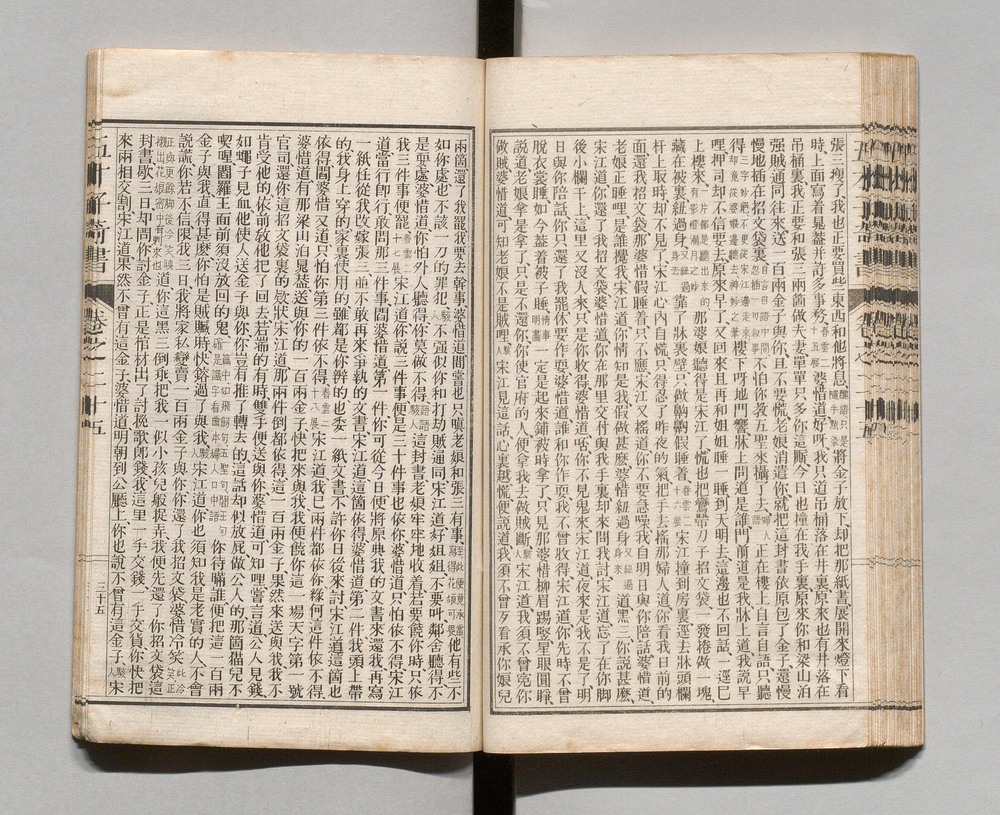 張三瘦了我也正正要買些東西和他將息將金子放下却把那紙書展開來燈下看
時上面寫着晁蓋并許多事務婆惜道好呀我只道吊桶落在井裏原來也有井落在
吊桶裏我正要和張三兩個做夫妻單單只多你這厮今日也撞在我手裏原來你和梁山泊
强賊通同往來送一百兩金子與你且不要慌老娘消遣你就把這封書依原包了金子還慢
慢地插在招文袋裏不怕你教五聖來攝了去正在樓上自言自語只聽
得樓下呀地門響床上問道是誰門前道是我床上道我說早
哩押司却不信要去原來早了又回來且再和姐姐睡一睡到天明去這邊也不回話一逕已
上樓來那婆娘聽得是宋江了慌忙把鸞帶刀子招文袋一發捲做一塊
藏在被裏紐過身靠了床裏壁只做齁齁假睡着宋江撞到房裏逕去床頭欄
杆上取時却不見了宋江心內自慌只得忍了昨夜的氣把手去搖那婦人道你看我日前的
面還我招文袋那婆惜假睡着只不應宋江又搖道你不要急躁我自明日與你陪話婆惜道
老娘正睡哩是誰攪我宋江道你情知是我假做甚麼婆惜紐過身道黑三你說甚麼
宋江道你還了我招文袋婆惜道你在那里交付與我手裏却來問我討宋江道忘了在你脚
後小欄干上這里又沒人來只是你收得婆惜道呸你不見鬼來宋江道夜來是我不是了明
日與你陪話你只還了我罷休要作耍婆惜道誰和你作耍我不曾收得宋江道你先時不曾
脫衣裳睡如今蓋着被子睡一定是起來鋪被時拿了只見那婆惜柳眉踢竪星眼圓睜
說道老娘拿是拿了只是不還你你使官府的人便拿我去做賊斷宋江道我須不曾冤你
做賊婆惜道可知老娘不是賊哩宋江見這話心裏越慌便說道我須不曾歹看承你娘兒
兩箇還了我罷我要去幹事婆惜道閒常也只嗔老娘和張三有事他有些不
如你處也不該一刀的罪犯不强似你和打劫賊通同宋江道好姐姐不要叫鄰舍聽得不
是耍處婆惜道你怕外人聽得你莫做不得這封書老娘牢牢地收着若要饒你時只依
我三件事便罷宋江道休說三件事便是三十件事也依你婆惜道只怕依不得宋江
道當行即行敢問那三件事閻婆惜道第一件你可從今日便將原典我的文書來還我再寫
一紙任從我改嫁張三並不敢再來爭執的文書宋江道這箇依得婆惜道第二件我頭上帶
的我身上穿的家裏使用的雖都是你辦的也委一紙文書不許你日後來討宋江道這箇也
依得閻婆惜又道只怕你第三件依不得宋江道我已兩件都依你緣何這件依不得
婆惜道有那梁山泊晁蓋送與你的一百兩金子快把來與我我便饒你這一場天字第一號
官司還你這招文袋裏的欵狀宋江道那兩件倒都依得這一百兩金子果然送來與我我不
肯受他的依前教他把了回去若端的有時雙手便送與你婆惜道可知哩常言道公人見錢
如蠅子見血他使人送金子與你你豈有推了轉去的這話却似放屁做公人的那箇猫兒不
喫腥閻羅王面前須沒放回的鬼你待瞞誰便把這一百兩
金子與我直得甚麽你怕是賊贓時快鎔過了與我宋江道你也須知我是老實的人不會
說謊你若不信限我三日我將家私變賣一百兩金子與你你還了我招文袋婆惜冷笑
道你這黑三倒乖把我一似小孩兒般捉弄我便先還了你招文袋這
封書歇三日却問你討金子正是棺材出了討挽歌郎錢我這里一手交錢一手交貨你快把
來兩相交割宋江道果然不曾有這金子婆惜道明朝到公廳上你也說不曾有這金子宋
三十五